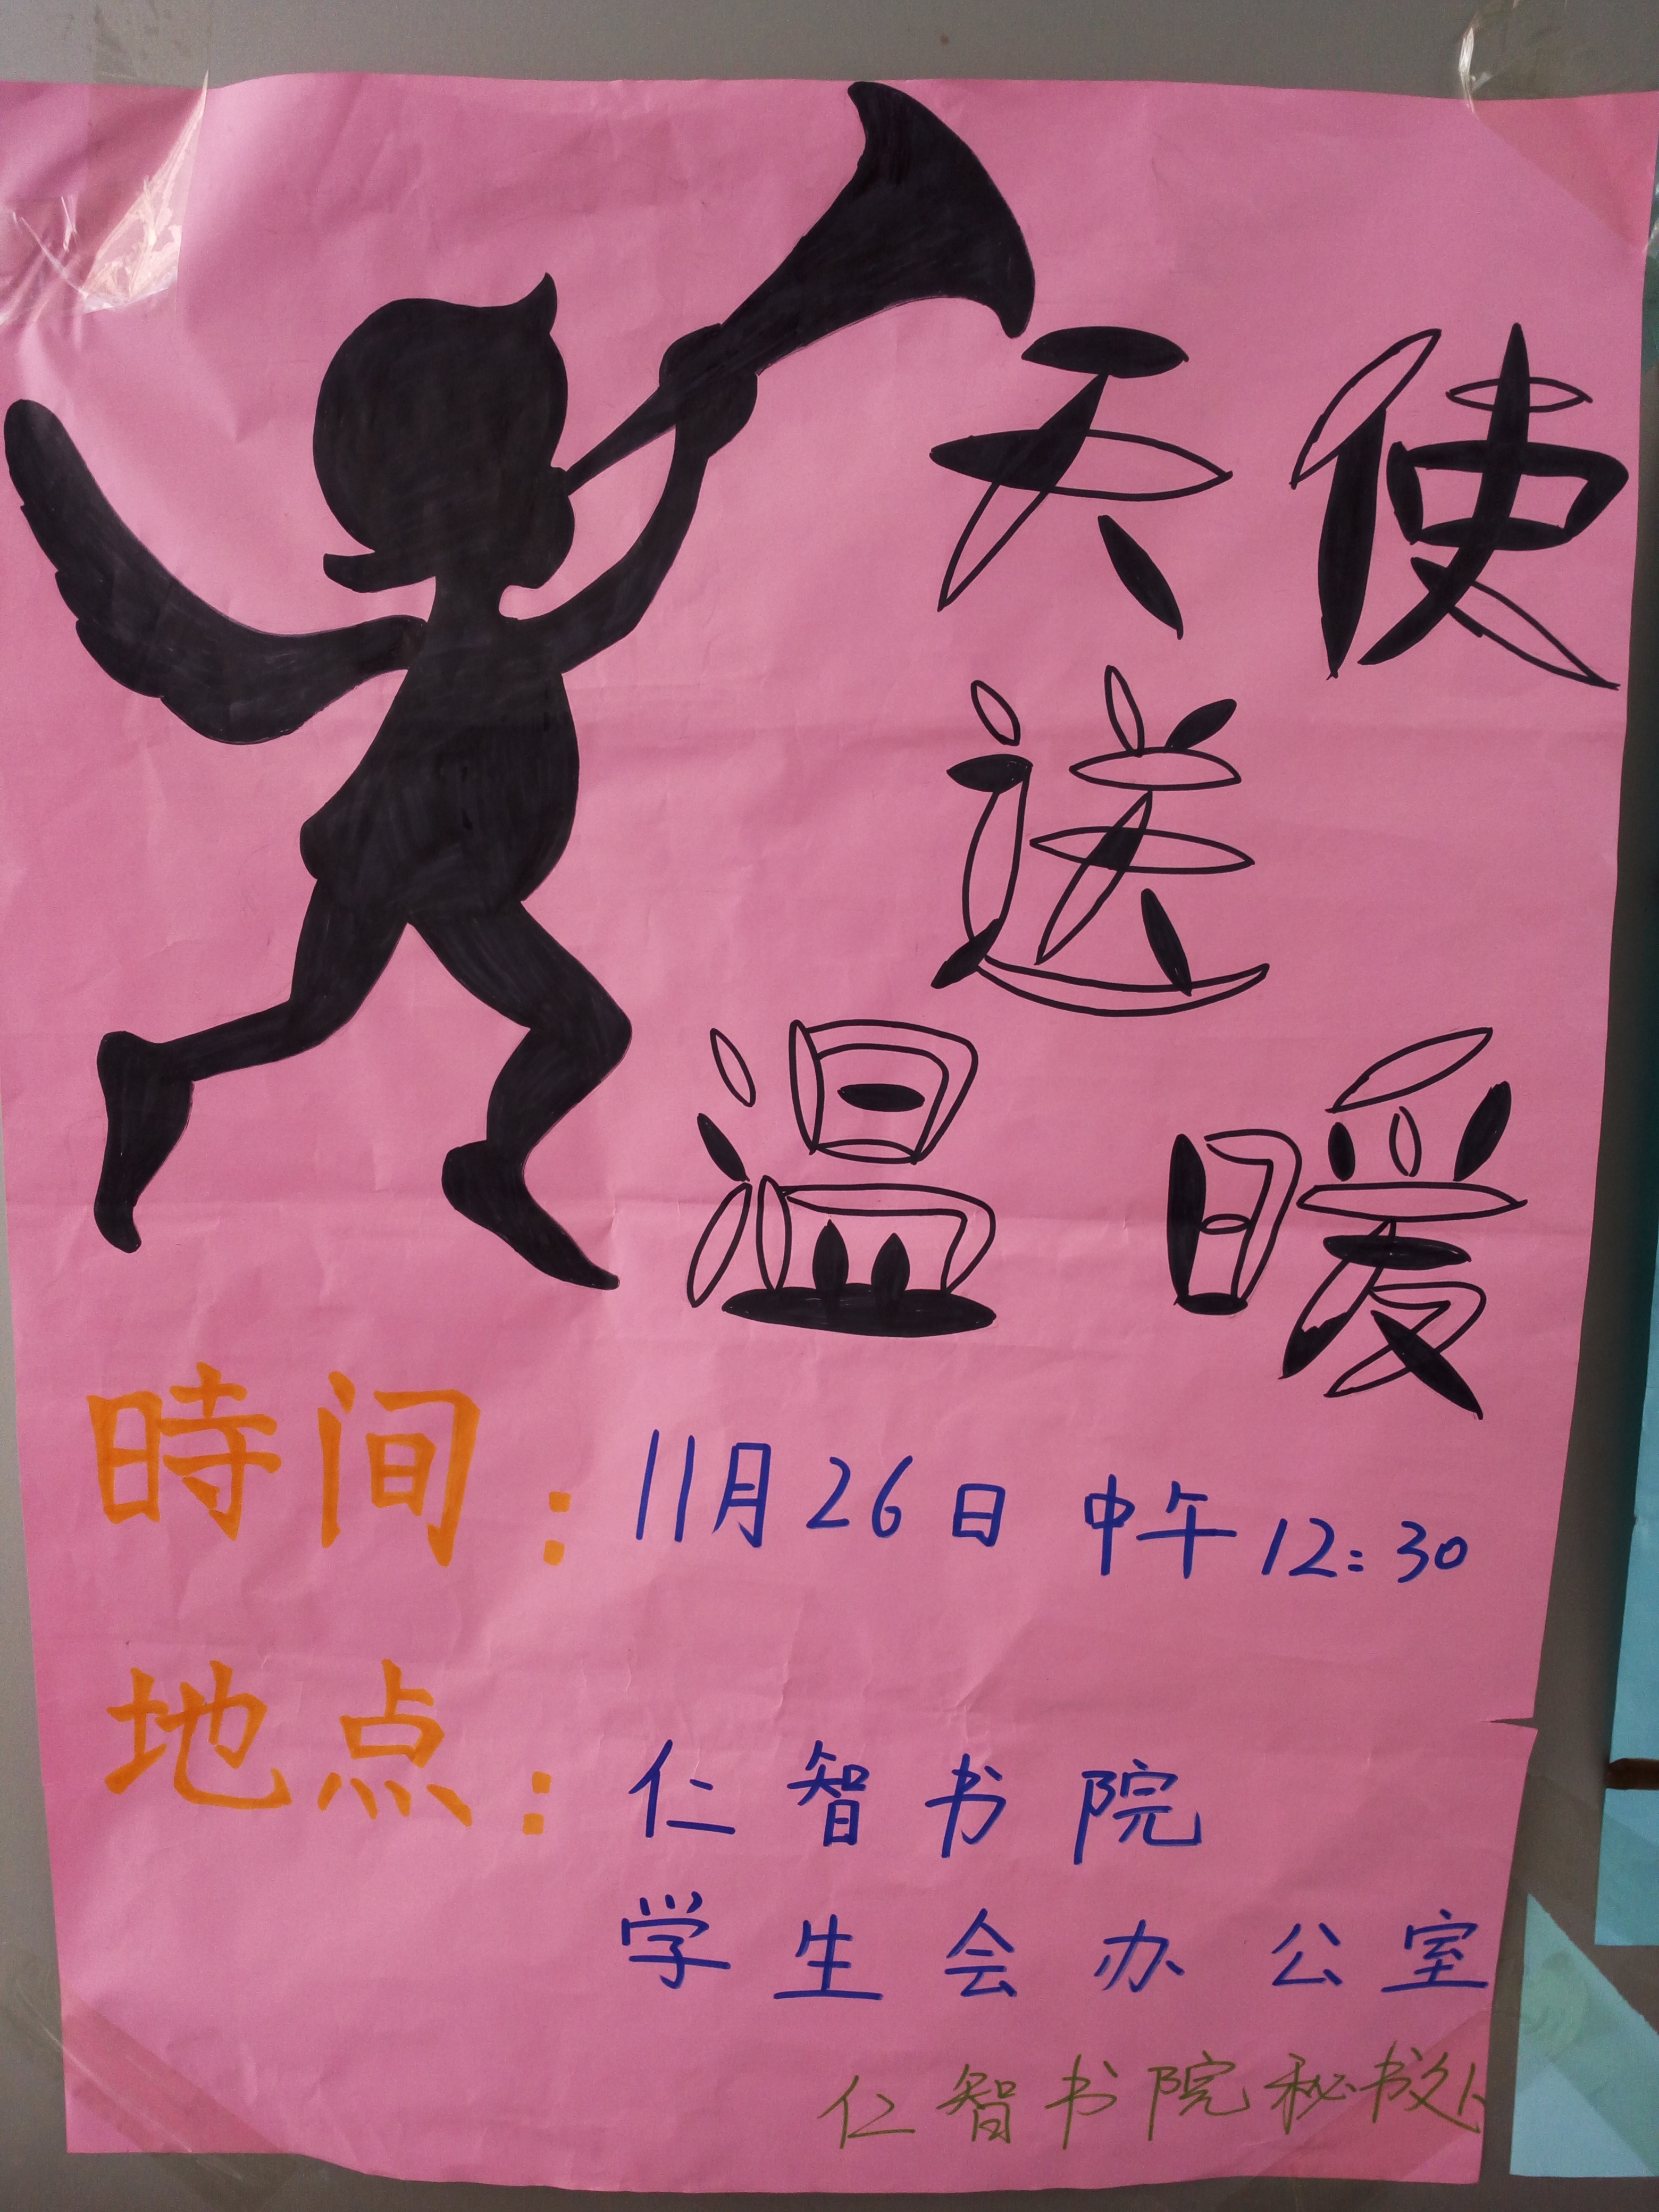 天使
送
温暖
時间：11月26日 中午12:30
地点：仁智书院
学生会办公室
仁智书院秘书处